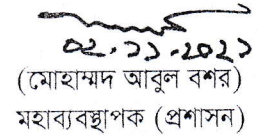 ০২.১১.২০২১
(মোহাম্মদ আবুল বশর)
মহাব্যবস্থাপক (প্রশাসন)